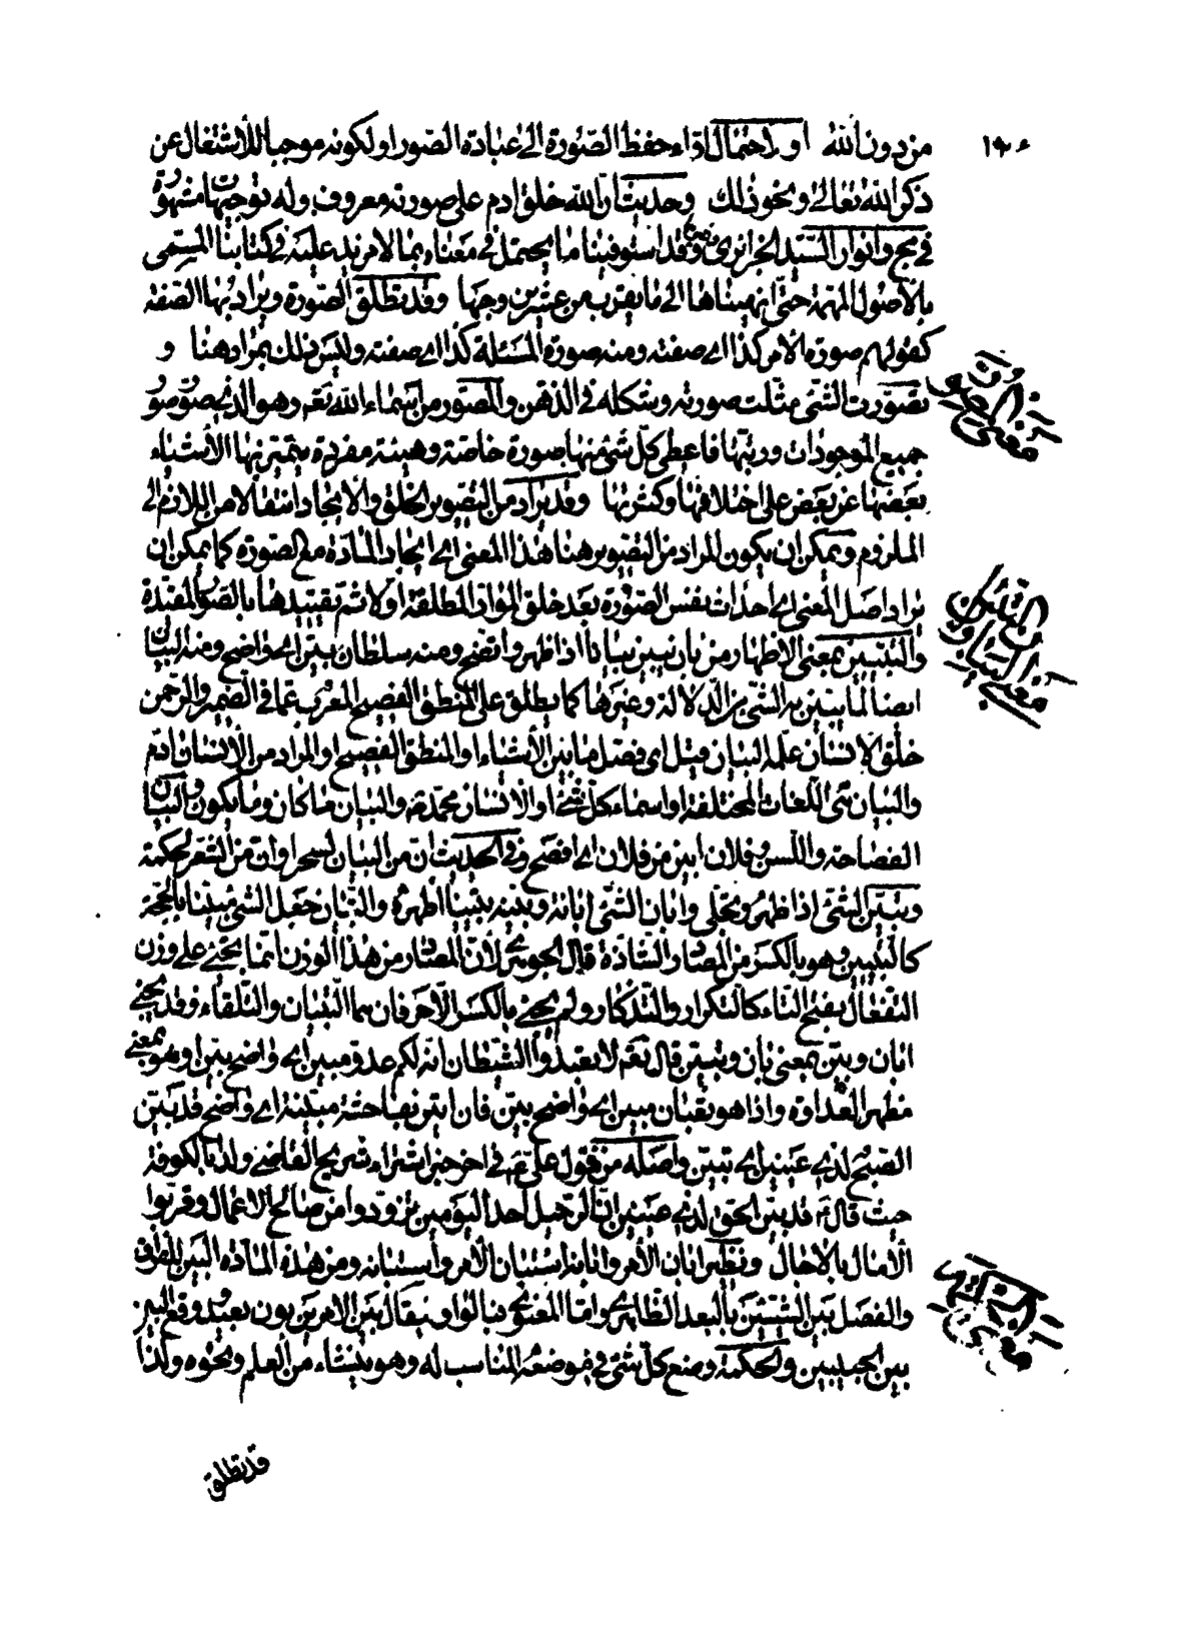 ١٩٠
من دون الله او لاحتمال اداء حفظ الصورة الى عبادة الصور او لكونه موجبا للاشتغال عن
ذكر الله تعالى ونحو ذلك وحديث ان الله خلق ادم على صورته معروف وله توجيهات مشهورة
في وانوار السيد الجزائرى وقد استوفينا ما يحتمل في معناه بما لا مزيد عليه في كتابنا المسمى
بالاصول المهمة حتى انهيناها الى ما يقرب من عشرين وجها وقد تطلق الصورة ويراد بها الصفة
كقولهم صورة الامر كذا اى صفته ومنه صورة المسئلة كذا اى صفته وليس ذلك بمراد هنا و
تصورت الشئ مثلت صورته وشكله في الذهن والمصور من اسماء الله تعم وهو الذى صور
جميع الموجودات ورتبها فاعطى كل شئ منها صورة خاصة وهيئة مفردة يتميز بها الاشياء
بعضها عن بعض على اختلافها وكثرتها وقد يراد من التصوير الخلق والايجاد انتقالا من اللازم الى
الملزوم ويمكن ان يكون المراد من التصوير هنا هذا المعنى اى ايجاد المادة مع الصورة كما يمكن ان
يراد اصل المعنى اى احداث نفس الصورة بعد خلق المواد المطلقة اولا ثم تقييدها بالصور المقيدة
والتبيين بمعنى الاظهار من بان يبين بيانا اذا ظهر واتضح ومنه سلطان مبين اى واضح ومنه البيان
ايضا لما يتبين به الشئ من الدلالة وغيرها كما يطلق على المنطق الفصيح المعرب عما في الضمير والرحمن
خلق الانسان علمه البيان قيل اى فصل ما بين الاشياء او المنطق الفصيح او المراد من الانسان ادم
والبيان اللغات المختلفة او اسماء كل شئ او الانسان محمد ص والبيان ما كان وما يكون والبيان
الفصاحة واللسن وفلان ابين من فلان اى افصح وفي الحديث ان من البيان لسحرا وان من الشعر لحكمة
وتبين الشئ اذا ظهر وتجلى وابان الشئ ابانة وبينه تبيينا اظهره والتبيان جعل الشئ مبينا بالحجة
كالتبيين وهو بالكسر من المصادر الشاذة قال الجوهرى لان المصادر من هذا الوزن انما يجئ على وزن
التفعال بفتح التاء كالتكرار والتذكار ولم يجئ بالكسر الا حرفان هما التبيان والتلقاء وقد يجئ
ابان وبين بمعنى بان وتبين قال تعم لا تعبدوا الشيطان انه لكم عدو مبين اى واضح بين او هو بمعنى
مظهر العداوة واذا هو ثعبان مبين اى واضح بين فان اتين بفاحشة مبينة اى واضح قد بين
الصبح لذى عينين اى تبين واصله من قول على ع في اخر خبر اشتراء شريح القاضى ولدا بالكوفة
حيث قال ع قد بين الحق لذى عينين ان الرحيل احد اليومين تزودوا من صالح الاعمال وقربوا
الآمال بالآجال ونظير ابان الامر وابانه استبان الامر واستبانه ومن هذه المادة البين للفراق
والفصل بين الشيئين بالبعد الظاهرى واما المعنوى فبالواو فيقال بين الامرين بون بعيد ووقع البين
بين الحبيبين والحكمة وضع كل شئ في موضعه المناسب له وهو ينشاء من العلم ونحوه ولذا
قد تطلق